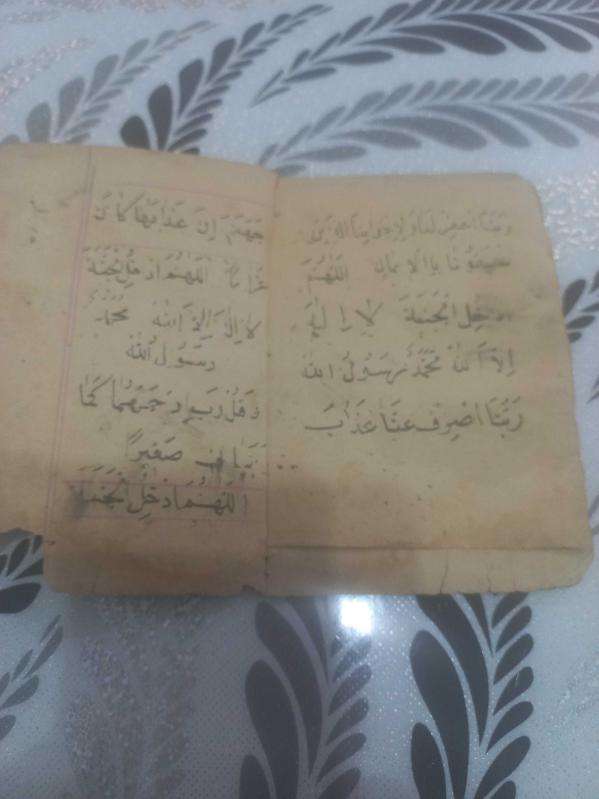 ربنا اغفر لنا ولإخواننا الذين
سبقونا بالايمان اللهم
ادخل الجنة لا إله
إلا الله محمد رسول الله
رَبَّنَا اصْرِفْ عَنَّا عَذَابَ
جَهَنَّمَ إِنَّ عَذَابَهَا كَانَ
غراما اللهم ادخل الجنة
لا إله إلا الله محمد
رسول الله
وقل رب ارحمهما كما
ربياني صغيرًا
اللهم ادخل الجنة